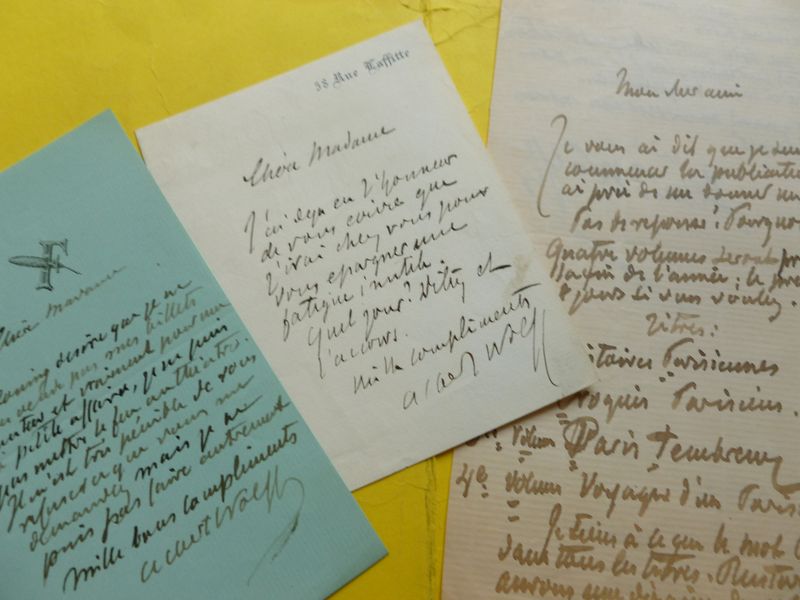 F
Chère Madame
désire que je ne
pas mes billets
et vraiment pour une
petite affaire, je ne puis
pas mettre le feu au théâtre.
Il m'est très pénible de vous
refuser ce que vous me
demandez mais je ne
puis pas faire autrement
Mille bons compliments
Albert Wolff
38 Rue Laffitte
Chère Madame
J'ai déjà eu l'honneur
de vous écrire que
j'irai chez vous pour
vous épargner une
fatigue inutile.
Quel jour? Dites et
j'accours.
Mille compliments
Albert Wolff
Mon cher ami
Je vous ai dit que je
commencer la publication
ai prié de me donner
Pas de réponse! Pourquoi
Quatre volumes seront
la fin de l'année; le
8 jours si vous voulez.
Titres:
Parisiennes
Croquis Parisiens.
volume Paris Tembreux
4e volume Voyage d'un Parisien
Je tiens à ce que le mot
dans tous les titres.
aurons une